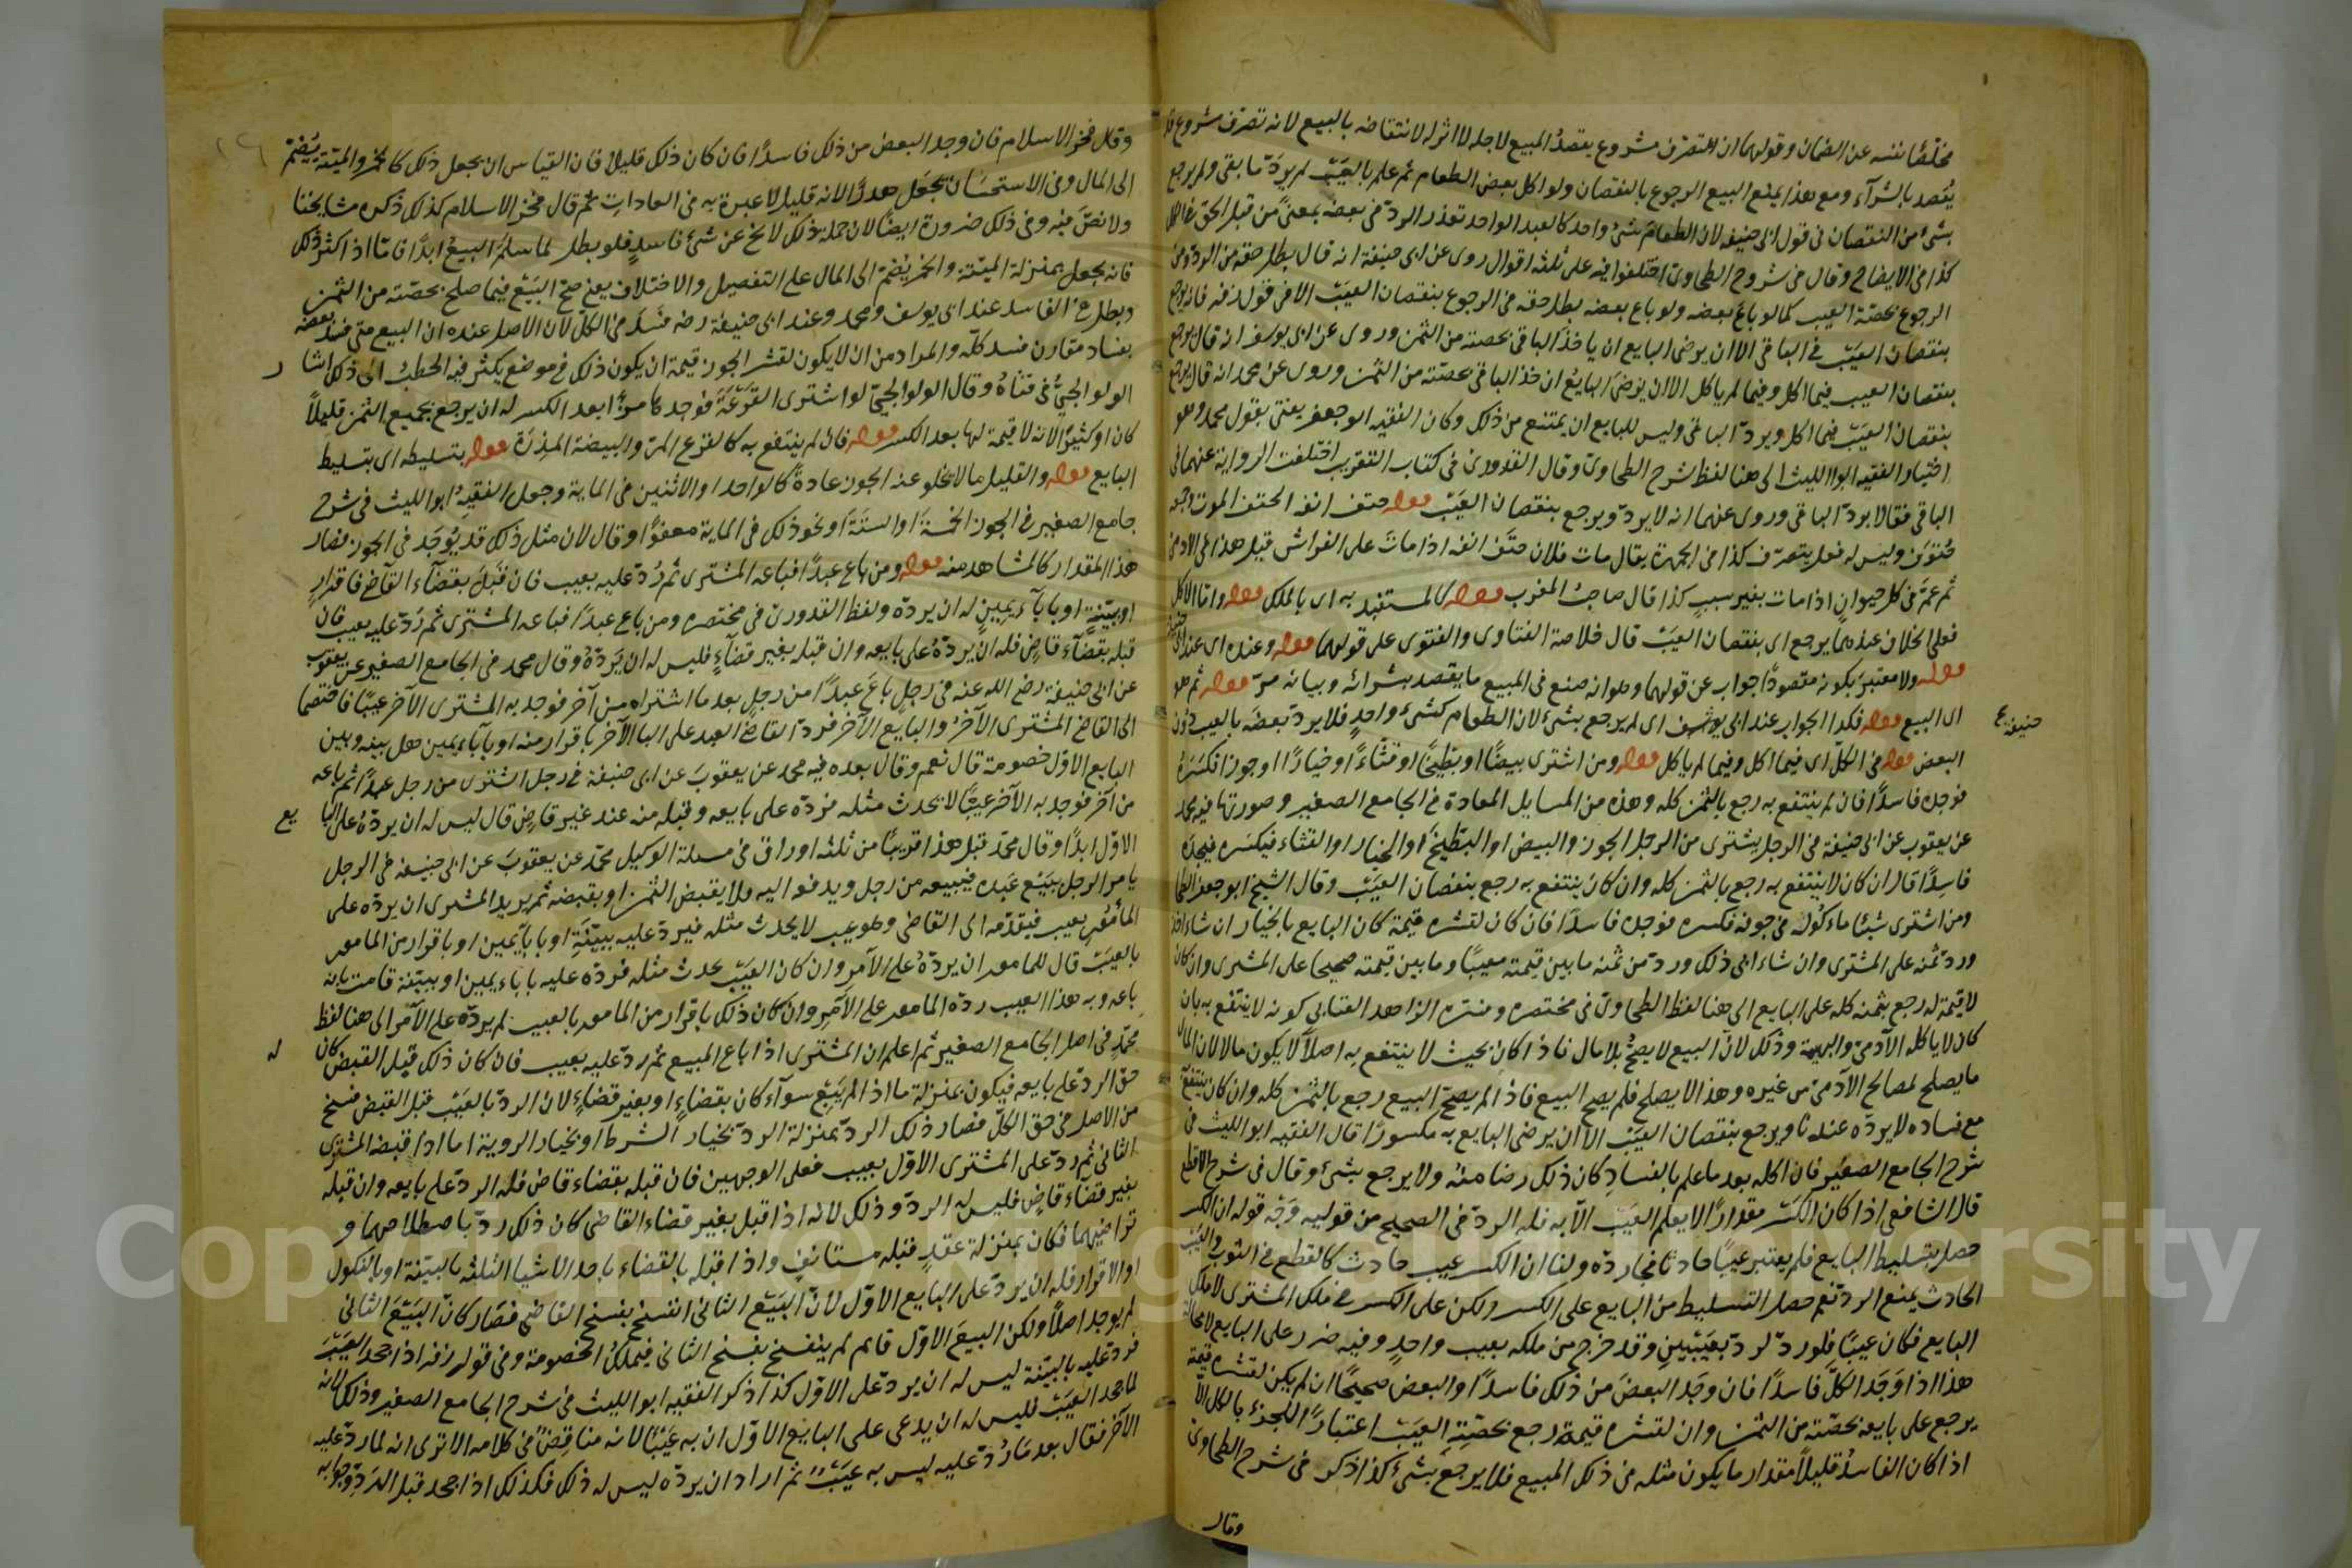 مخلصًا نفسه عن الضمان وقولهما ان التصرف مشروع يقصد المبيع لاجله لا اثر له لانتقاضه بالبيع لانه تصرف مشروع
يقصد بالشرآء ومع هذا يمنع البيع الرجوع بالنقصان ولو اكل بعض الطعام ثم علم بالعيب لم يردّ ما بقى ولم يرجع
بشئ من النقصان فى قول ابى حنيفه لان الطعام شئ واحد كالعبد الواحد تعذر الردّ فى بعضه بمعنىً من قبل
كذا فى الايضاح وقال فى شروح الطحاوى اختلفوا فيه على ثلثه اقوال روى عن ابى حنيفة انه قال بطل حقه من الرد ومن
الرجوع بحصّة العيب كما لو باع بعضه ولو باع بعضه بطل حقه فى الرجوع بنقصان العيب الا فى قول زفر فانه يرجع
بنقصان العيب فى الباقى الا ان يرضى البايع ان ياخذ الباقى بحصته من الثمن وروى عن ابى يوسف انه قال يرجع
بنقصان العيب فيما اكل وفيما لم ياكل الا ان يرضى البايع ان خذ الباقى بحصّته من الثمن وروى عن محمد انه قال يرجع
بنقصان العيب فيما اكل ويردّ الباقى وليس للبايع ان يمتنع من ذلك وكان الفقيه ابو جعفر يفتى بقول محمد وهو
اختيار الفقيه ابو الليث الى هنا لفظ شرح الطحاوى وقال القدورى فى كتاب التقريب اختلفت الرواية عنهما فى
الباقى فقالا يردّ الباقى وروى عنهما انه لا يردّ ويرجع بنقصان العيب قوله حتف انفه الحتف الموت وجمعه
حُتوف وليس له فعل يتصرّف كذا فى الجمهرة يقال مات فلان حتف انفه اذا مات على الفراش قيل هذا فى الادمى
ثم عمّ فى كل حيوان اذا مات بغير سبب كذا قال صاحب المغرب قوله كالمستفيد به اى بالملك قوله واما الاكل
فعلى الخلاف عندهما يرجع اى بنقصان العيب قال خلاصة الفتاوى والفتوى على قولهما قوله وعنده اى عند ابى
قوله ولا معتبر بكونه مقصودًا جواب عن قولهما وهو انه صنع فى المبيع ما يقصد بشرائه وبيانه مرّ قوله ثم هو
اى البيع قوله فكذا الجواب عند ابى يوسف اى لم يرجع بشئ لان الطعام كشئ واحد فلا يردّ بعضه بالعيب دون
حنيفة
البعض قوله فى الكلّ اى فيما اكل وفيما لم ياكل قوله ومن اشترى بيضًا او بطيخًا او قثّاءً او خيارًا او جوزا فكسره
فوجده فاسدًا فان لم ينتفع به رجع بالثمن كله وهذه من المسايل المعادة فى الجامع الصغير وصورتها فيه محمد
عن يعقوب عن ابى حنيفة فى الرجل يشترى من الرجل الجوز والبيض او البطيخ او الخيار او القثاء فيكسره فيجده
فاسدًا قال ان كان لا ينتفع به رجع بالثمن كله وان كان ينتفع به رجع بنقصان العيب وقال الشيخ ابو جعفر
ومن اشترى شيئا ماكوله فى جوفه فكسره فوجده فاسدًا فان كان لقشره قيمة كان البايع بالخيار ان شاء
وردّ ثمنه على المشترى وان شاء ابى ذلك وردّ من ثمنه ما بين قيمته معيبًا وما بين قيمته صحيحا على المشترى وان كان
لا قيمة له رجع بثمنه كله على البايع الى هنا لفظ الطحاوى فى مختصره وفسّره الزاهد العتابى كونه لا ينتفع به بان
كان لا ياكله الآدمىّ والبهيمة وذلك لانّ البيع لا يصحّ بلا مال فاذا كان بحيث لا ينتفع به اصلاً لا يكون مالا لان المال
ما يصلح لمصالح الآدمىّ من غيره وهذا لا يصلح فلم يصح البيع فاذا لم يصحّ البيع رجع بالثمن كله وان كان ينتفع
مع فساده لا يردّه عندنا ويرجع بنقصان العيب الا ان يرضى البايع به مكسورًا قال الفقيه ابو الليث فى
شرح الجامع الصغير فان اكله بعد ما علم بالفساد كان ذلك رضا منه ولا يرجع بشئ وقال فى شرح الاقطع
قال الشافعى اذا كان الكسر مقدارًا لا يعلم العيب الّا به فله الردّ فى الصحيح من قوليه وَجْه قوله ان الكسر
حصل بتسليط البايع فلم يعتبر عيبًا حادثا فجاز ردّه ولنا ان الكسر عيب حادث كالقطع فى الثوب والعيب
الحادث يمنع الردّ نعم حصل التسليط من البايع على الكسر ولكن على الكسر فى ملك المشترى لا ملك
البايع فكان عيبًا فلو ردّ لردّ بعيبين وقد خرج من ملكه بعيب واحد وفيه ضرر على البايع لا محالة
هذا اذا وَجَد الكلّ فاسدًا فان وجد البعض من ذلك فاسدًا والبعض صحيحًا ان لم يكن لقشره قيمة
يرجع على بايعه بحصّته من الثمن وان لقشره قيمة رجع بحصّة العيب اعتبارًا للجزء بالكل الّا
اذا كان الفاسد قليلاً مقدار ما يكون مثله فى ذلك المبيع فلا يرجع بشئ كذا ذكر فى شرح الطحاوى
وقال
وقال فخر الاسلام فان وجد البعض من ذلك فاسدًا فان كان ذلك قليلا فان القياس ان يجعل ذلك كالخمر والميتة يضمّ
الى المال وفى الاستحسان يجعل هدرًا لانه قليل لا عبرة به فى العادات ثم قال فخر الاسلام كذلك ذكره مشايخنا
ولا نصّ فيه وفى ذلك ضرورة ايضًا لان جملة ذلك لا يخ عن شئ فاسد فلو بطل لما سلم البيع ابدًا فامّا اذا كثر ذلك
فانه يجعل بمنزلة الميتة والخمر يضمّ الى المال على التفصيل والاختلاف يعنى صحّ البيع فيما صلح بحصّته من الثمن
وبطل فى الفاسد عند ابى يوسف ومحمد وعند ابى حنيفة رضه فسد فى الكلّ لان الاصل عنده ان البيع متى فسد بعضه
بفساد مقارن فسد كلّه والمراد من ان لا يكون لقشر الجوز قيمة ان يكون ذلك فى موضع يكثر فيه الحطب الى ذلك اشار
الولوالجىّ فى فتاواه وقال الولوالجىّ لو اشترى القرعة فوجدها مرّا بعد الكسر له ان يرجع بجميع الثمن قليلاً
كان او كثيرًا لانه لا قيمة لها بعد الكسر قوله فان لم ينتفع به كالقرع المرّ والبيضة المذرة قوله بتسليطه اى بتسليط
البايع قوله والقليل ما لا يخلو عنه الجوز عادةً كالواحد او الاثنين فى الماية وجعل الفقيه ابو الليث فى شرح
جامع الصغير فى الجوز الخمسة او الستة او نحو ذلك فى الماية معفوًّا وقال لان مثل ذلك قد يوجد فى الجوز فصار
هذا المقدار كالمشاهد منه قوله ومن باع عبدًا فباعه المشترى ثم رُدّ عليه بعيب فان قبل بقضآء القآضى باقرار
او ببيّنة او بابآء يمين له ان يردّه ولفظ القدورى فى مختصره ومن باع عبدًا فباعه المشترى ثم رُدّ عليه بعيب فان
قبله بقضآء قاض فله ان يردّه على بايعه وان قبله بغير قضآء فليس له ان يردّهُ وقال محمد فى الجامع الصغير عن يعقوب
عن ابى حنيفة رضى الله عنه فى رجل باع عبدًا من رجل بعد ما اشتراه من آخر فوجد به المشترى الآخر عيبًا فاختصما
الى القاضى المشترى الآخر والبايع الآخر فردّ القاضى العبد على البا الآخر باقرار منه او بابآء يمين هل بينه وبين
البايع الاوّل خصومة قال نعم وقال بعده فيه محمد عن يعقوب عن ابى حنيفة فى رجل اشترى من رجل عبدًا ثم باعه
من آخر فوجد به الآخر عيبًا لا يحدث مثله فردّه على بايعه وقبله منه عند غير قاض قال ليس له ان يردّه على البايع
الاوّل ابدًا وقال محمّد قبل هذا قريبًا من ثلثه اوراق فى مسلة الوكيل محمّد عن يعقوب عن ابى حنيفه فى الرجل
يامر الرجل ببيع عبده فيبيعه من رجل ويدفعه اليه ولا يقبض الثمن او يقبضه ثم يريد المشترى ان يردّه على
المأمُور بعيب فيقدّمه الى القاضى وهو عيب لا يحدث مثله فيردّ عليه ببيّنة او بابآء يمين او باقرار من المامور
بالعيب قال للمامور ان يردّه على الآمر وان كان العيب يحدث مثله فردّه عليه باباء يمين او ببيّنة قامت بانه
باعه وبه هذا العيب ردّه المامور على الآمر وان كان ذلك باقرار من المامور بالعيب لم يردّه على الآمر الى هنا لفظ
محمّد فى اصل الجامع الصغير ثم اعلم ان المشترى اذا باع المبيع ثم ردّ عليه بعيب فان كان ذلك قبل القبض كان له
حقّ الردّ على بايعه فيكون بمنزلة ما اذا لم يبع سوآء كان بقضاء او بغير قضاء لان الردّ بالعيب قبل القبض فسخ
من الاصل فى حق الكلّ فصار ذلك الردّ بمنزلة الردّ بخيار الشرط او بخيار الروية اما اذا قبضه المشترى
الثانى ثم ردّ على المشترى الاوّل بعيب فعلى الوجهين فان قبله بقضاء قاض فله الردّ على بايعه وان قبله
بغير قضآء قاض فليس له الردّ وذلك لانه اذا قبل بغير قضاء القاضى كان ذلك ردّ باصطلاحهما و
تراضيهما فكان بمنزلة عقد مستانف واذا قبله بالقضاء باحد الاشيا الثلثه بالبيّنة او بالنكول
او الاقرار فله ان يردّ على البايع الاوّل لانّ البيع الثانى انفسخ بفسخ القاضى فصار كانّ البيع الثانى
لم يوجد اصلاً ولكن البيع الاوّل قائم لم ينفسخ بفسخ الثانى فيملك الخصومة وفى قول زفر اذا جحد العيب
فردّ عليه بالبيّنة ليس له ان يردّ على الاوّل كذا ذكر الفقيه ابو الليث فى شرح الجامع الصغير وذلك لانه
لما جحد العيب فليس له ان يدعى على البايع الاوّل ان به عيبًا لانه مناقض فى كلامه الا ترى انه لما ردّ عليه
الآخر فقال بعد ما ردّ عليه ليس به عيب ثم اراد ان يردّه ليس له ذلك فكذلك اذا جحد قبل الردّ وجوابه
Copyright © King Saud University